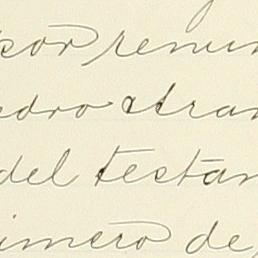 por renun
edro atra
del testa
imero de